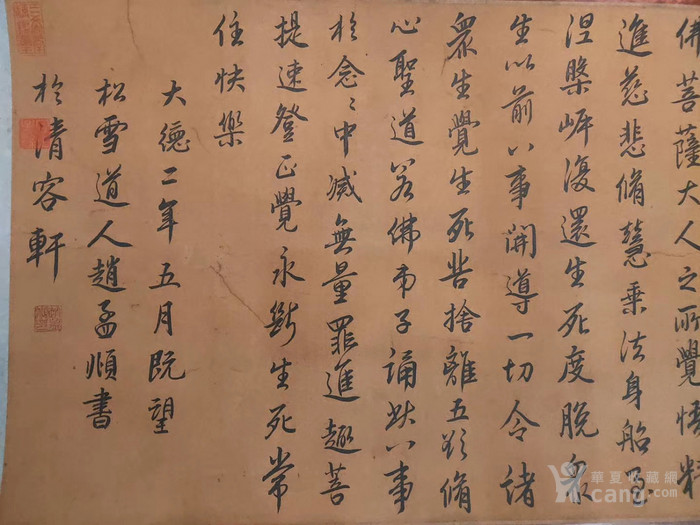 佛菩薩大人之所覺悟精
進慈悲脩慧乘法身船至
涅槃岍復還生死度脫眾
生以前八事開導一切令諸
眾生覺生死苦捨離五欲脩
心聖道若佛弟子誦此八事
於念〻中滅無量罪進趣菩
提速登正覺永斷生死常
住快樂
大德二年五月既望
松雪道人趙孟頫書
於清容軒
華夏收藏網
cang.com